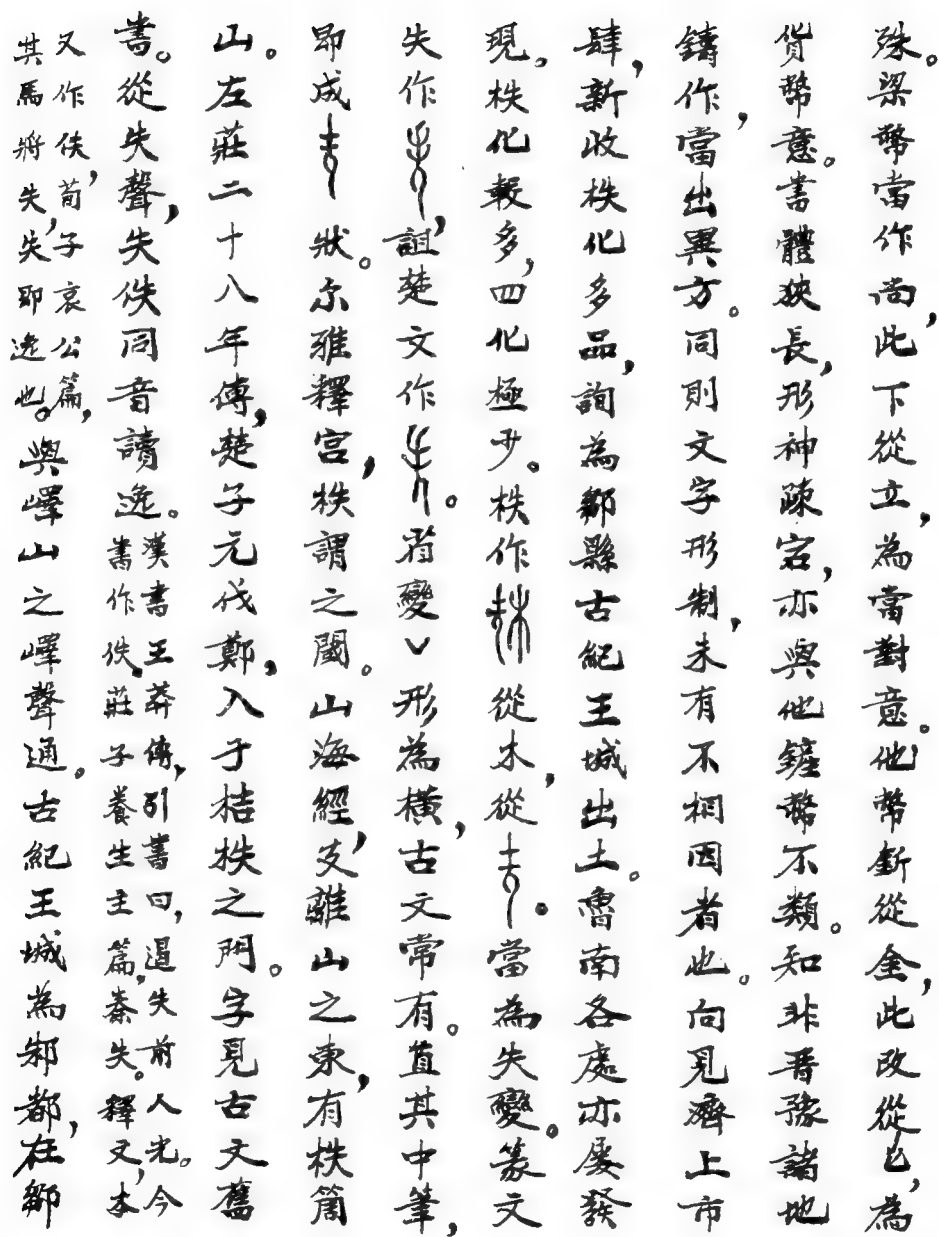 殊。梁幣當作尚，此下從立，為當對意。他幣釿從金，此改從乜，為
貨幣意。書體狹長，形神疎宕，亦與他鏟幣不類。知非晋豫諸地
鑄作，當出異方。同則文字形制，未有不相因者也。向見濟上市
肆，新收栿化多品，詢為鄒縣古紀王城出土。魯南各處亦屡發
現。柣化較多，四化極少。柣作從木，從。當為失變。篆文
失作，詛楚文作。省變㇄形為橫，古文常有。直其中筆，
即成狀。尔雅釋宮，柣謂之閾。山海經，支離山之東，有柣筒
山。左莊二十八年傳，楚子元伐鄭，入于桔柣之門。字見古文舊
書。從失聲，失佚同音讀逸。漢書王莽傳，引書曰，遏失前人光。今
書作佚。莊子養生主篇，秦失。釋文，本
又作佚，荀子哀公篇，
其馬將失，失即逸也。與嶧山之嶧聲通。古紀王城為邾都，在鄒